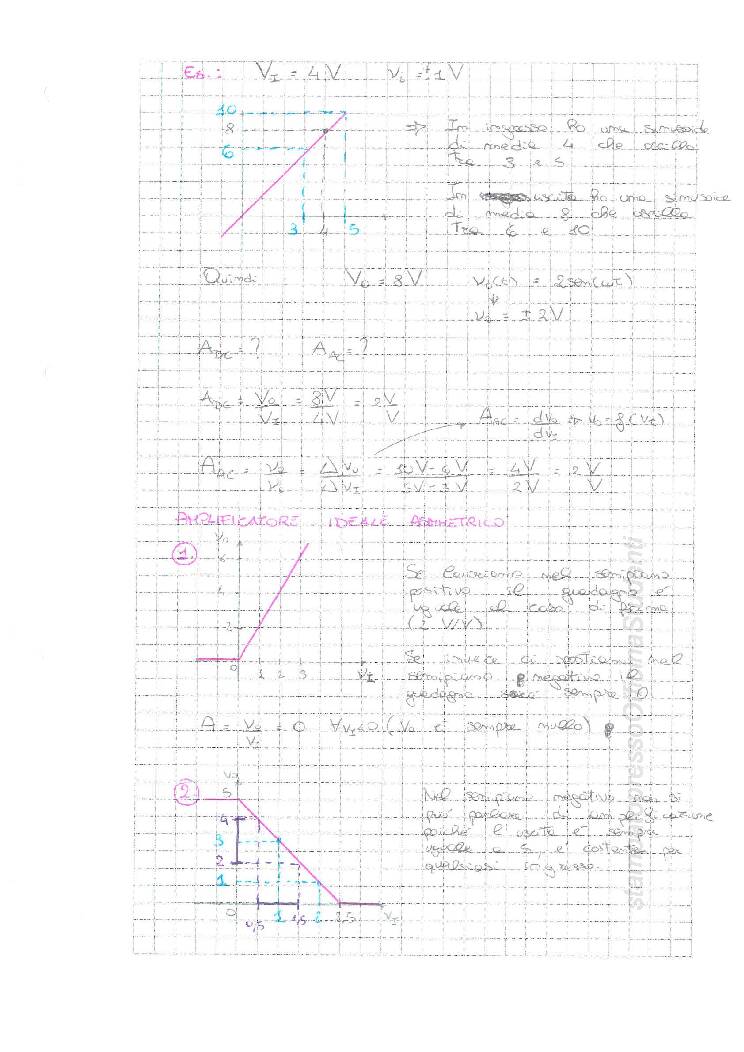 Es.: V_I = 4V v_i = ±1V
10
8
6
3 4 5
⇒ In ingresso ho una sinusoide
di media 4 che oscilla
tra 3 e 5
In uscita ho una sinusoide
di media 8 che oscilla
tra 6 e 10
Quindi V_o = 8V v_o(t) = 2sen(ωt)
↓
v_o = ±2V
A_DC = ? A_AC = ?
A_DC = V_o/V_I = 8V/4V = 2 V/V
A_AC = dv_o/dv_I ⇒ v_o = f(v_I)
A_AC = v_o/v_i = Δv_o/Δv_I = 10V-6V/5V-3V = 4V/2V = 2 V/V
AMPLIFICATORE IDEALE ASIMMETRICO
1.
V_o
6
4
2
0 1 2 3 V_I
Se lavoriamo nel semipiano
positivo il guadagno è
uguale al caso di prima
(2 V/V)
Se invece ci spostiamo nel
semipiano negativo il
guadagno sarà sempre 0
A = v_o/v_I = 0 ∀v_I≤0 (V_o è sempre nullo)
2.
5
4
3
2
1
0 0,5 1 1,5 2 2,5 V_I
Nel semipiano negativo non si
può parlare di amplificazione
poiché l'uscita è sempre
uguale a 5 e costante per
qualsiasi ingresso.
stampato presso CentomaStudenti